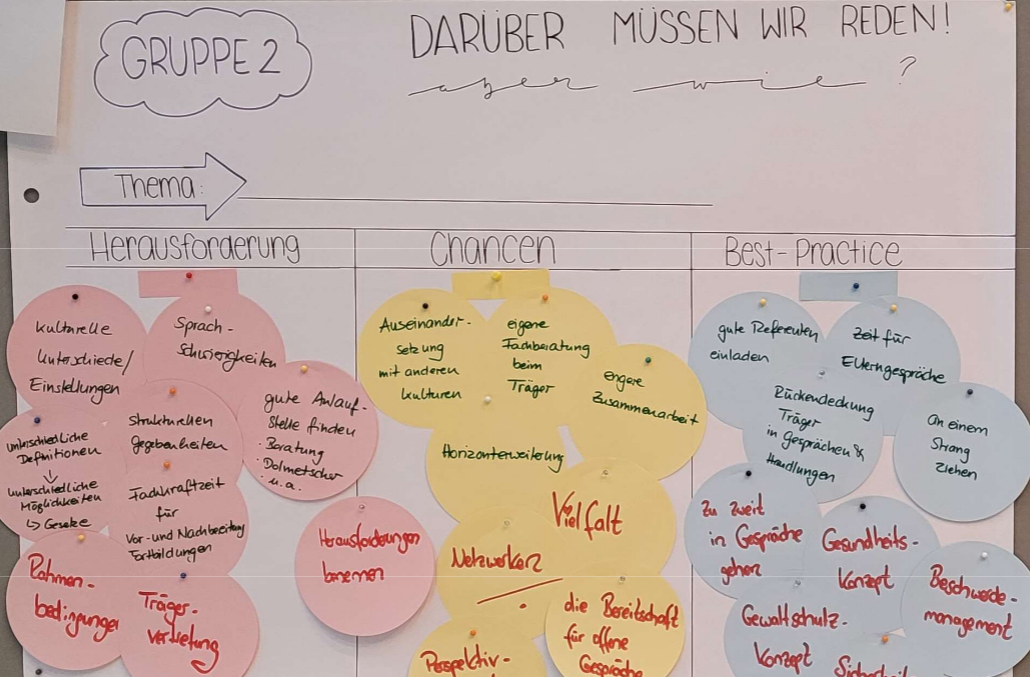 GRUPPE 2
DARÜBER MÜSSEN WIR REDEN!
aber wie ?
Thema:
Herausforderung
kulturelle
Unterschiede/
Einstellungen
Sprach-
Schwierigkeiten
gute Anlauf-
stelle finden
· Beratung
· Dolmetscher
u.a.
Strukturellen
gegebenheiten
unterschiedliche
Definitionen
↓
unterschiedliche
Möglichkeiten
↳ Gesetze
Fachkraftzeit
für
Vor- und Nachbereitung
Fortbildungen
Herausforderungen
benennen
Rahmen-
bedingungen
Träger-
vertretung
Chancen
Auseinander-
setzung
mit anderen
kulturen
eigene
Fachberatung
beim
Träger
engere
Zusammenarbeit
Horizonterweiterung
Vielfalt
Netzwerken
die Bereitschaft
für offene
Gespräche
Perspektiv-
Best-Practice
gute Referenten
einladen
Zeit für
Elterngespräche
Rückendeckung
Träger
in Gesprächen &
Handlungen
An einem
Strang
ziehen
Zu zweit
in Gespräche
gehen
Gesundheits-
Konzept
Beschwerde-
management
Gewaltschutz-
Konzept